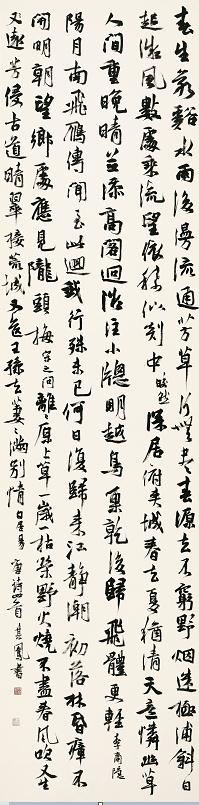 春生若谿水雨後漫流通芳草行無盡春源去不窮野烟迷極浦斜日
起微風數處乘流望依稀似剡中皎然深居府夾城春去夏猶清天意憐幽草
人間重晚晴並添高閣迴微注小窗明越鳥巢乾後歸飛體更輕李商隱
陽月南飛雁傳聞至此迴我行殊未已何日復歸來江静潮初落林昏瘴不
開明朝望鄉處應見隴頭梅宋之問離離原上草一歲一枯榮野火燒不盡春風吹又生
又遠芳侵古道晴翠接荒城又送王孫去萋萋滿別情白居易唐詩四首其鳳書